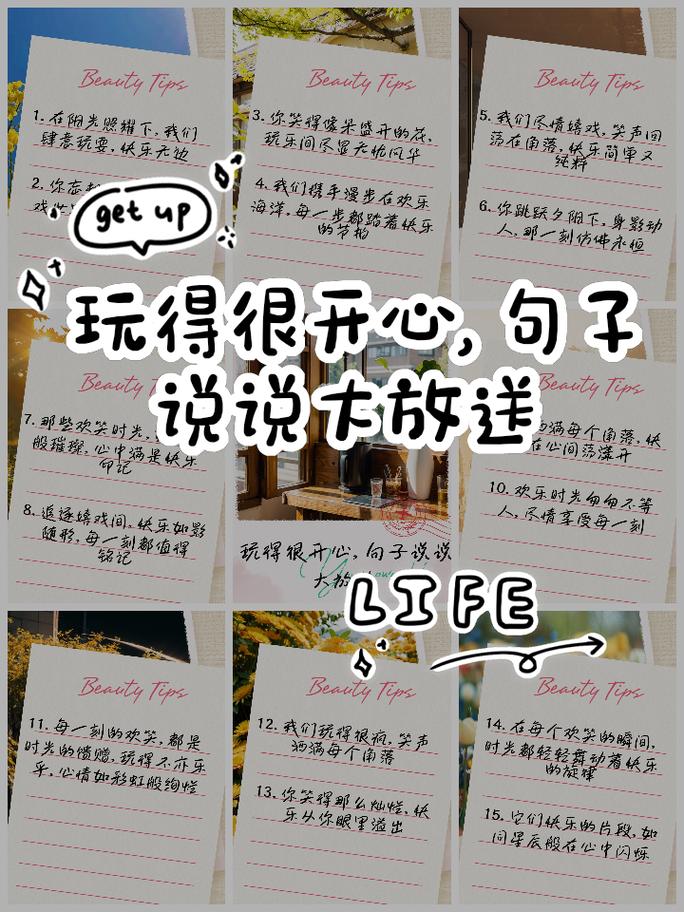 Beauty Tips
1. 在阳光照耀下, 我们
肆意玩耍, 快乐无边
2. 你
戏
Beauty Tips
3. 你笑得像朵盛开的花,
玩乐间尽显无忧风华
4. 我们携手漫步在欢乐
海洋, 每一步都踏着快乐
的节拍
Beauty Tips
5. 我们尽情嬉戏, 笑声回
荡在角落, 快乐简单又
纯粹
6. 你跳跃夕阳下, 身影动
人, 那一刻仿佛永恒
get up
玩得很开心, 句子
说说大放送
Beauty
7. 那些欢笑时光,
般璀璨, 心中满是快乐
印记
8. 追逐嬉戏间, 快乐如影
随形, 每一刻都值得
铭记
玩得很开心, 句子说说
大放
Beauty Tips
洒满每个角落, 快
在心间荡漾开
10. 欢乐时光匆匆不等
人, 尽情享受每一刻
LIFE
Beauty Tips
11. 每一刻的欢笑, 都是
时光的馈赠, 玩得不亦乐
乎, 心情如彩虹般绚烂
Beauty Tips
12. 我们玩得很疯, 笑声
洒满每个角落
13. 你笑得那么灿烂, 快
乐从你眼里溢出
Beauty Tips
14. 在每个欢笑的瞬间,
时光都轻轻舞动着快乐
的旋律
15. 它们快乐的片段, 如
同星辰般在心中闪烁